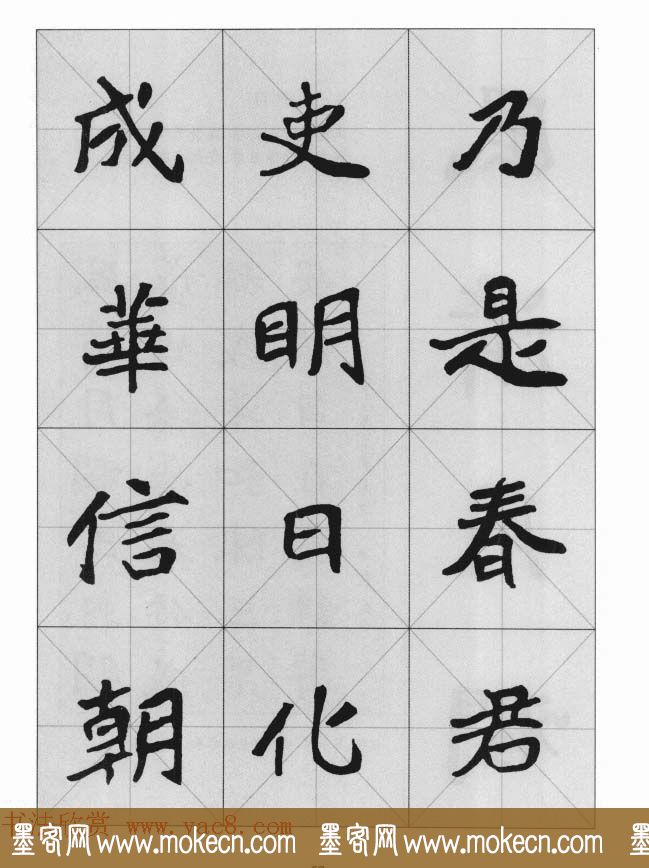 乃是春君
吏明日化
成華信朝
书法欣赏 www.yac8.com
墨客网 www.mokecn.com 墨客网 www.mokecn.com